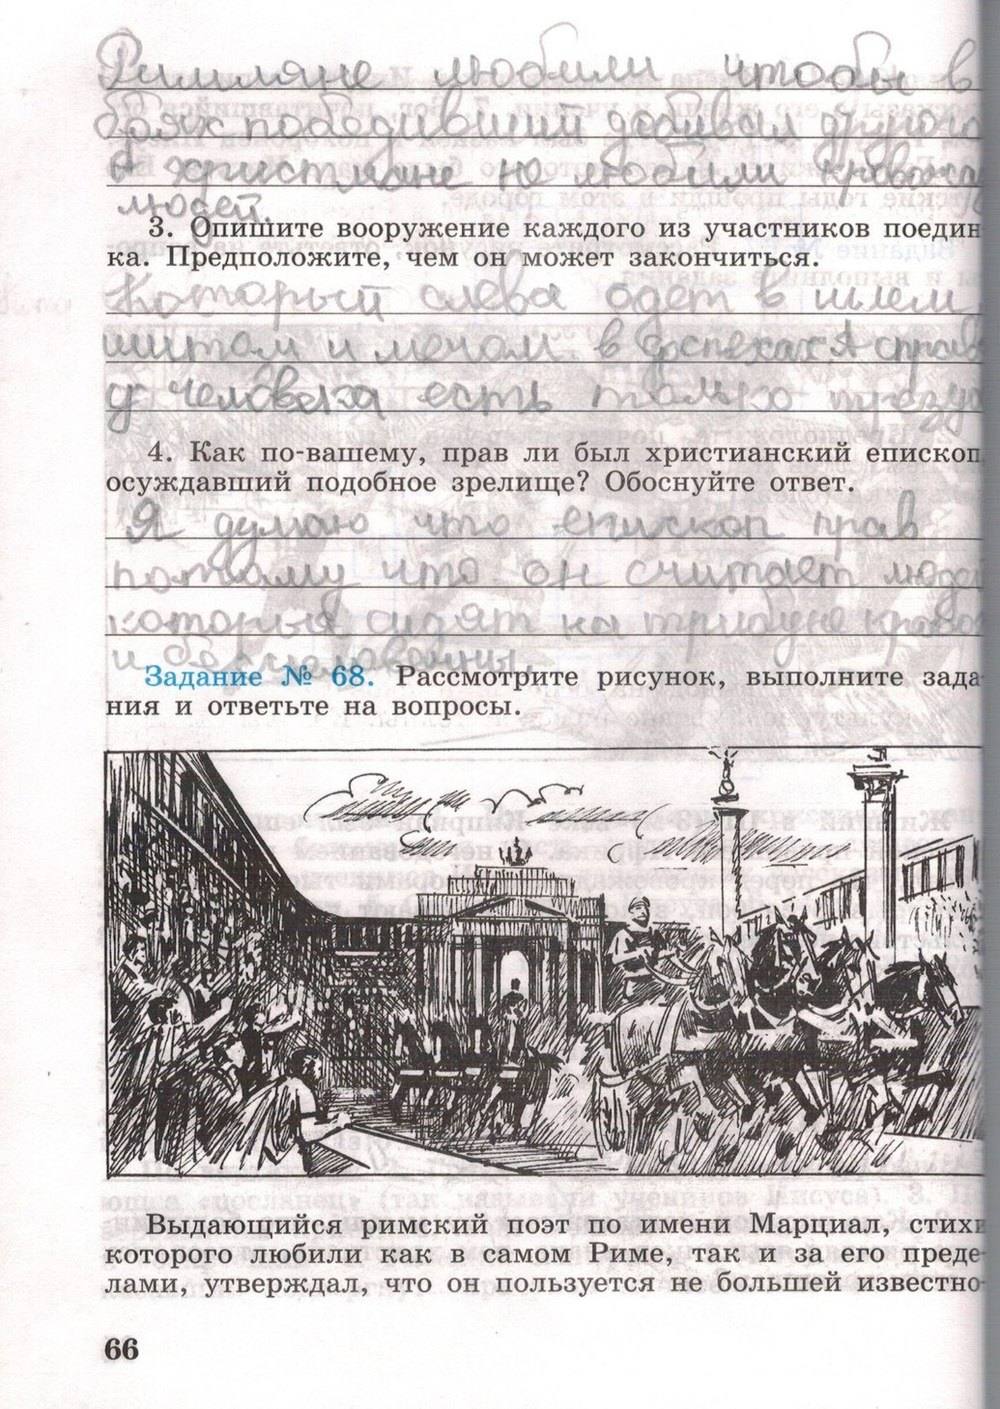 Римляне любили чтобы в
боях победивший добивал другого
а христиане не любили
людей.
3. Опишите вооружение каждого из участников поедин-
ка. Предположите, чем он может закончиться.
Который слева одет в шлем
щитом и мечом в доспехах А справ
у человека есть только трезу
4. Как по-вашему, прав ли был христианский епископ,
осуждавший подобное зрелище? Обоснуйте ответ.
Я думаю что епископ прав
потому что он считает людей
которые сидят на трибуне
и
Задание № 68. Рассмотрите рисунок, выполните зада-
ния и ответьте на вопросы.
Выдающийся римский поэт по имени Марциал, стихи
которого любили как в самом Риме, так и за его преде-
лами, утверждал, что он пользуется не большей известно-
66